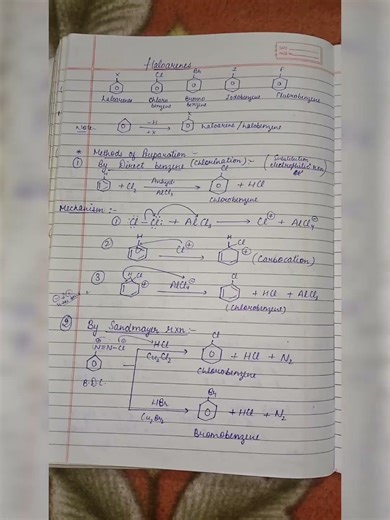 Haloarenes
X Cl Br I F
haloarene Chloro benzene Bromo benzene Iodobenzene Fluorobenzene
Note:- -H +X X haloarene/halobenzene
* Methods of Preparation :-
① By Direct benzene (chlorination):- (Substitution electrophilic rxn)
H + Cl₂ Anhyd AlCl₃ Cl + HCl
Chlorobenzene
Mechanism :-
① Cl – Cl: + AlCl₃ → Cl⊕ + AlCl₄⊖
② H Cl⊕ → H Cl ⊕ (Carbocation)
③ H Cl ⊕ AlCl₄⊖ → Cl + HCl + AlCl₃
(Chlorobenzene)
② By Sandmayer rxn :-
N≡N–Cl HCl Cu₂Cl₂ Cl + HCl + N₂
Chlorobenzene
B.D.C.
HBr Cu₂Br₂ Br + HCl + N₂
Bromobenzene